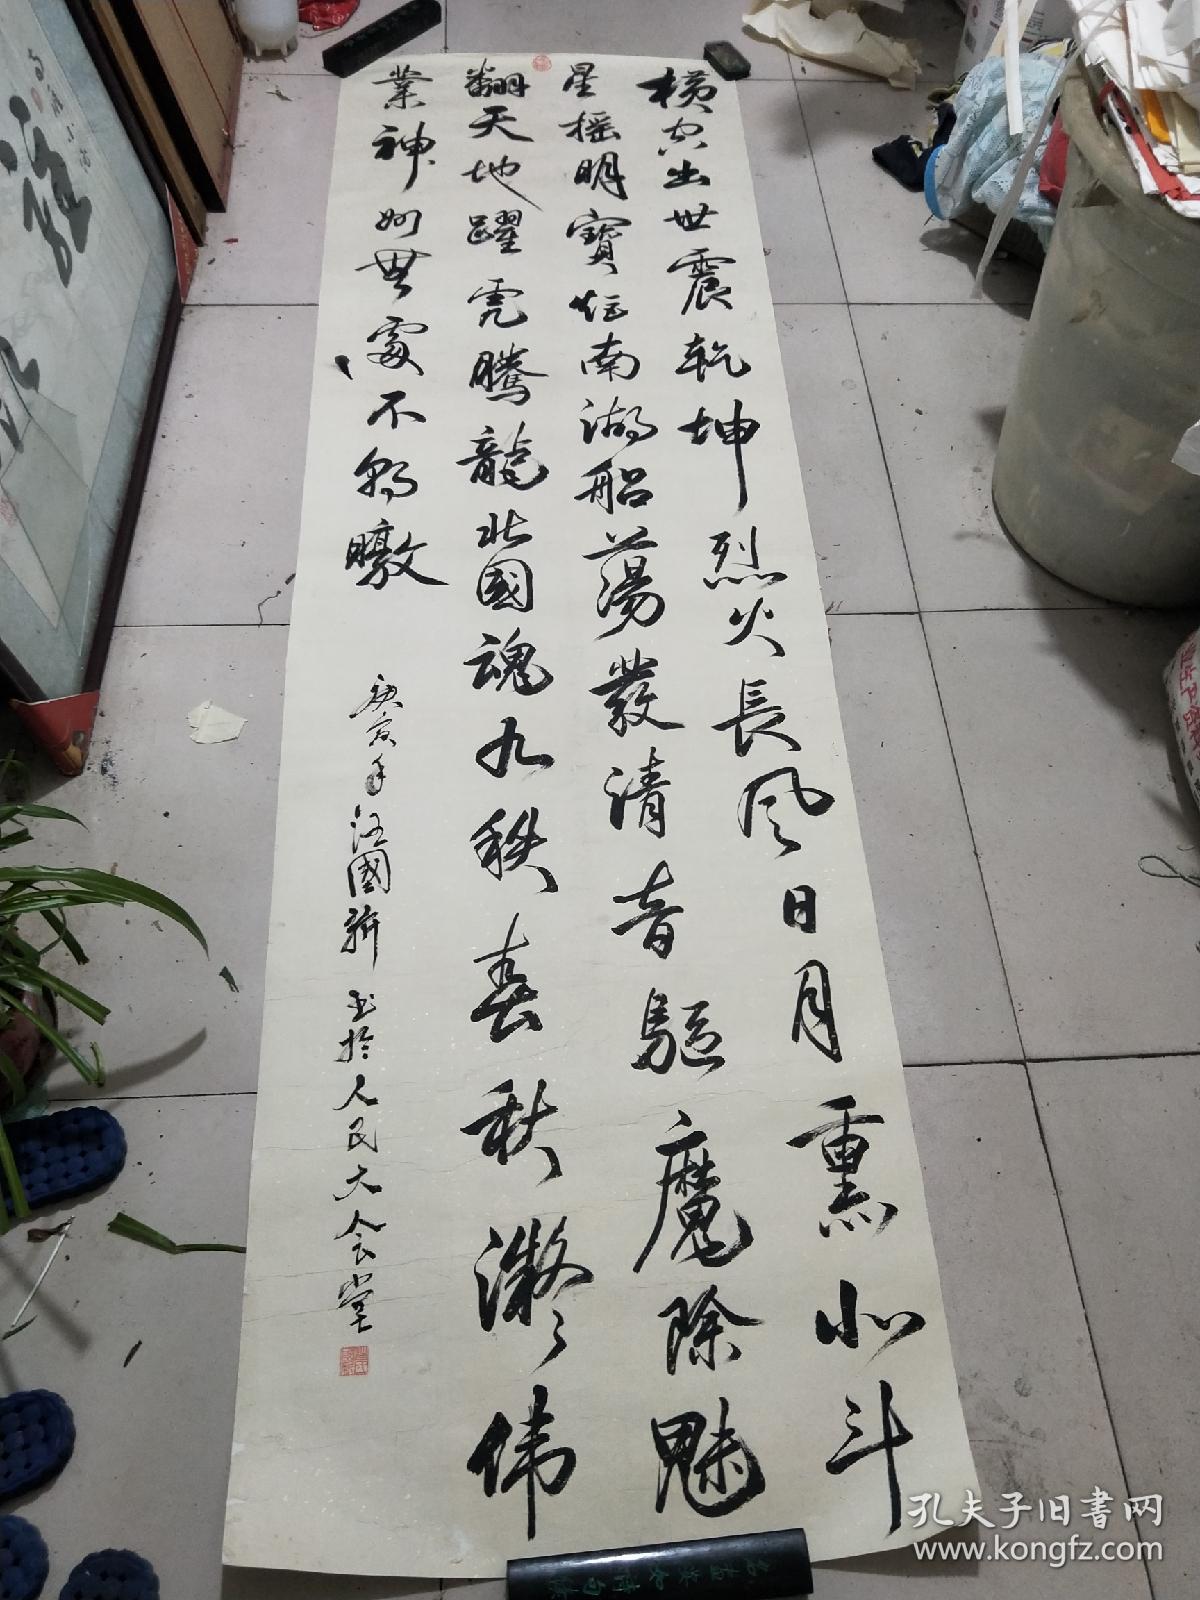 横空出世震乾坤烈火長風日月熏北斗
星摇明寶炬南湖船蕩發清音驅魔除魅
翻天地躍虎騰龍北國魂九秩春秋激之伟
業神州無處不朝暾
庚寅年汪國新書於人民大會堂
孔夫子旧書网
www.kongfz.com